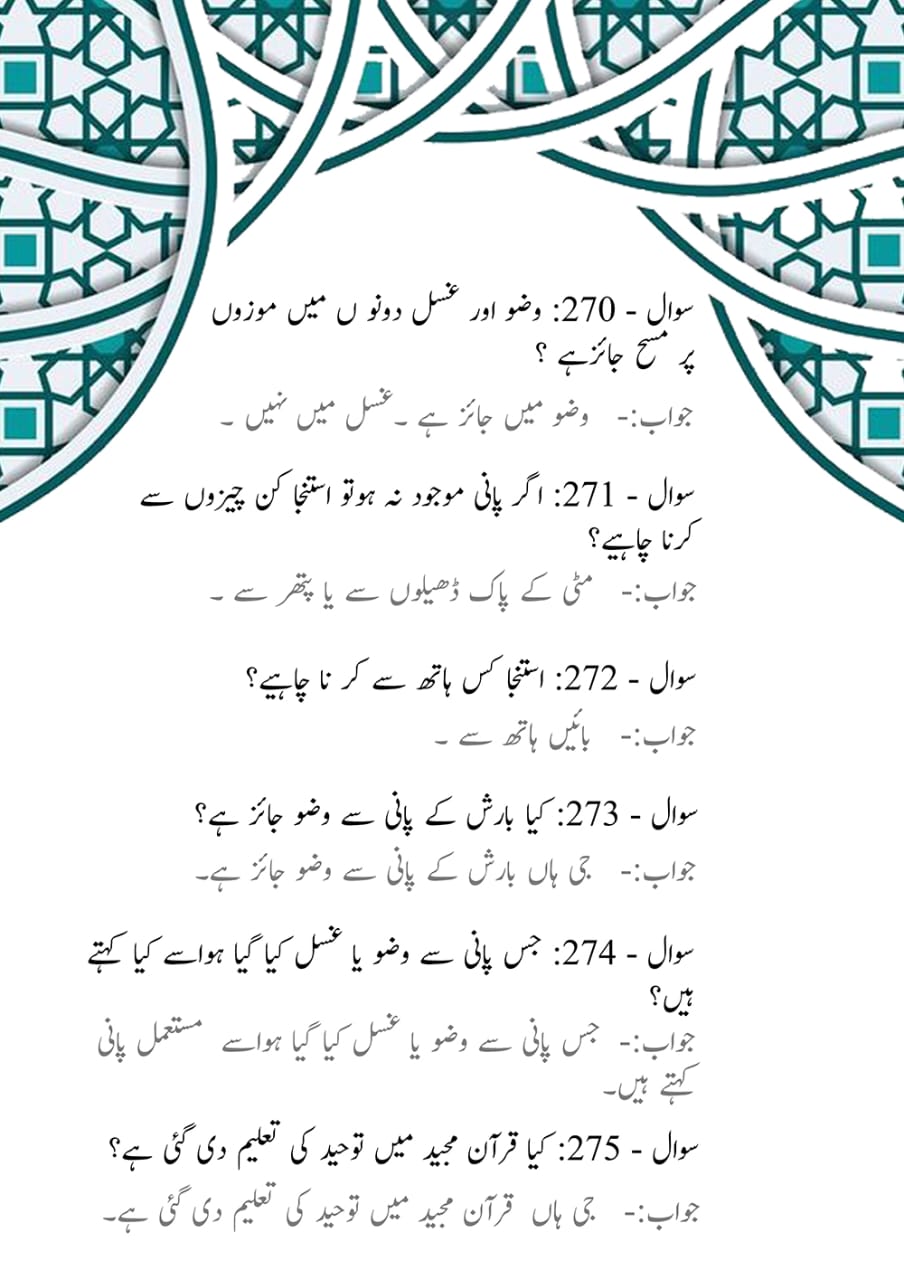 سوال - 270: وضو اور غسل دونو ں میں موزوں
پر مسح جائزہے ؟
جواب:- وضو میں جائز ہے ۔غسل میں نہیں ۔
سوال - 271: اگر پانی موجود نہ ہوتو استنجا کن چیزوں سے
کرنا چاہیے؟
جواب:- مٹی کے پاک ڈھیلوں سے یا پتھر سے ۔
سوال - 272: استنجا کس ہاتھ سے کر نا چاہیے؟
جواب:- بائیں ہاتھ سے ۔
سوال - 273: کیا بارش کے پانی سے وضو جائز ہے؟
جواب:- جی ہاں بارش کے پانی سے وضو جائز ہے۔
سوال - 274: جس پانی سے وضو یا غسل کیا گیا ہواسے کیا کہتے
ہیں؟
جواب:- جس پانی سے وضو یا غسل کیا گیا ہواسے مستعمل پانی
کہتے ہیں۔
سوال - 275: کیا قرآن مجید میں توحید کی تعلیم دی گئی ہے؟
جواب:- جی ہاں قرآن مجید میں توحید کی تعلیم دی گئی ہے۔